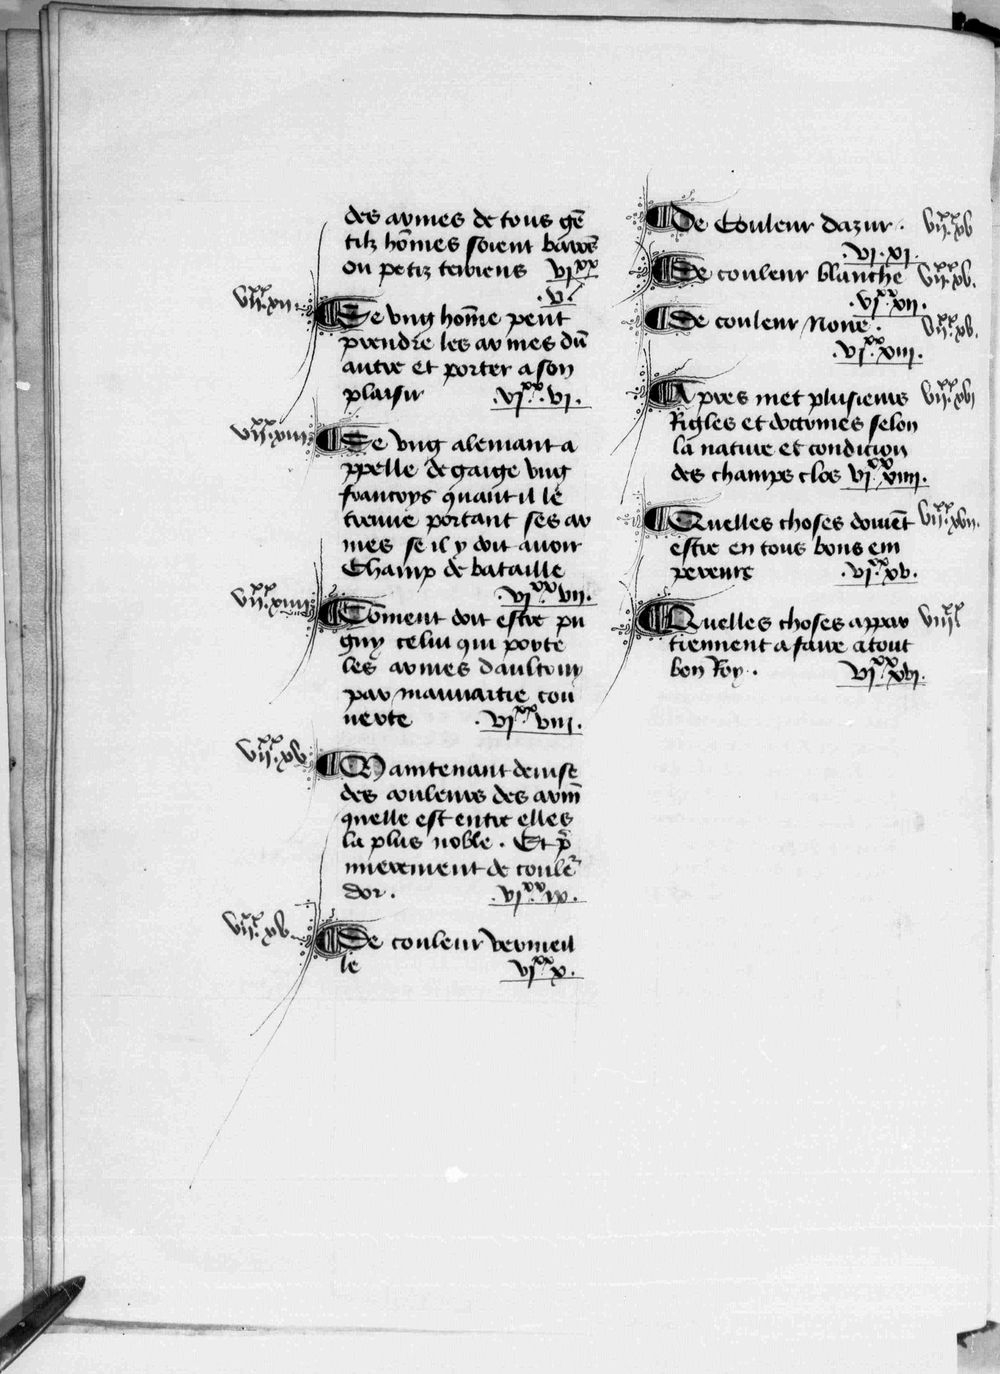 des armes de tous gē
tilz hōmes soient barōs
ou petiz terriens vi^xx
.v.
vii^xx.xii
¶ Se ung hōme peut
prendre les armes dū
autre et porter a son
plaisir vi^xx.vi.
vii^xx.xiii
¶ Se ung alemant a
ppelle de gaige ung
francoys quant il le
treuve portant ses ar
mes se il y doit avoir
Champ de bataille
.vi^xx.vii.
vii^xx.xiiii
¶ Cōment doit estre pu
guy celui qui porte
les armes daultruy
par mauvaitie cou
verte .vi^xx.viii.
vii^xx.xv
¶ Maintenant devise
des couleurs des arm̄
quelle est entre elles
la plus noble. Et p̄
mierement de coule᷑
dor. .vi^xx.ix.
vii^xx.xv
¶ De couleur vermeil
le vi^xx.x.
¶ De Couleur dazur. vii^xx.xv
.vi.xi.
¶ De couleur blanche vii^xx.xv.
.vi^xx.xii.
¶ De couleur Noire. vii^xx.xv.
.vi^xx.xiii.
¶ Apres met plusieurs vii^xx.xvi
Rigles et doctrines selon
la nature et condicion
des champs clos vi^xx.xiiii.
¶ Quelles choses doivēt vii^xx.xvii.
estre en tous bons em
pereurs .vi^xx.xv.
¶ Quelles choses appar viii^xx
tiennent a faire a tout
bon Roy. vi^xx.xvi.